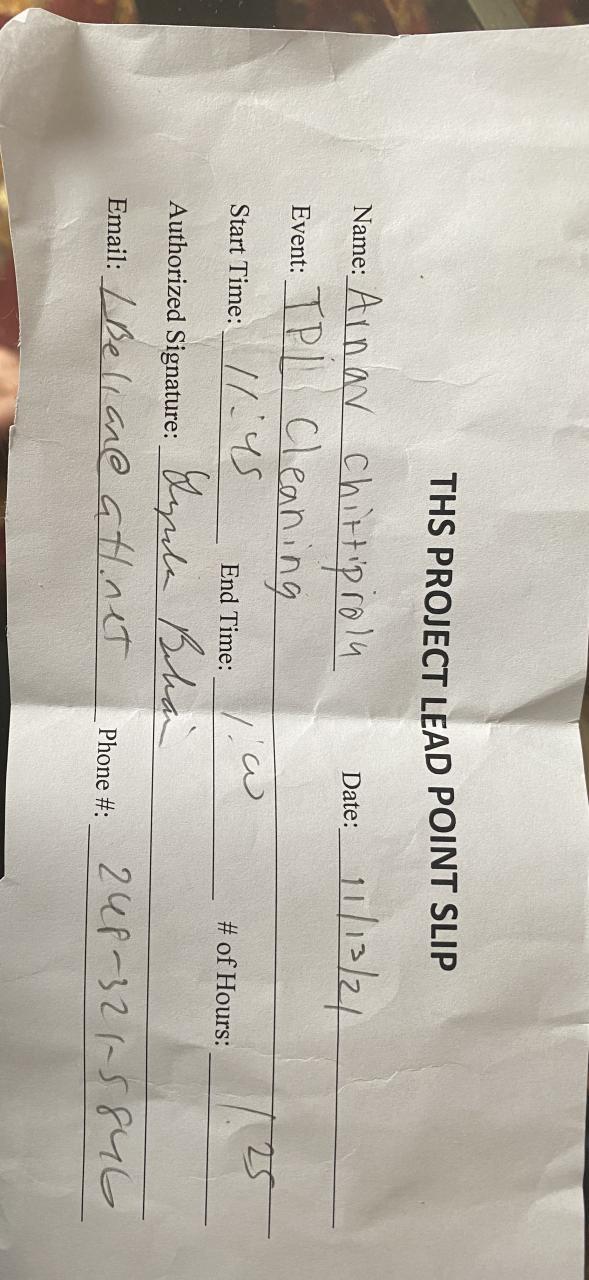 THS PROJECT LEAD POINT SLIP
Name: Arnav Chittiprolu Date: 11/13/21
Event: TPL Cleaning
Start Time: 11:45 End Time: 1:00 # of Hours: 1.25
Authorized Signature:
Email: Phone #: 248-321-5846